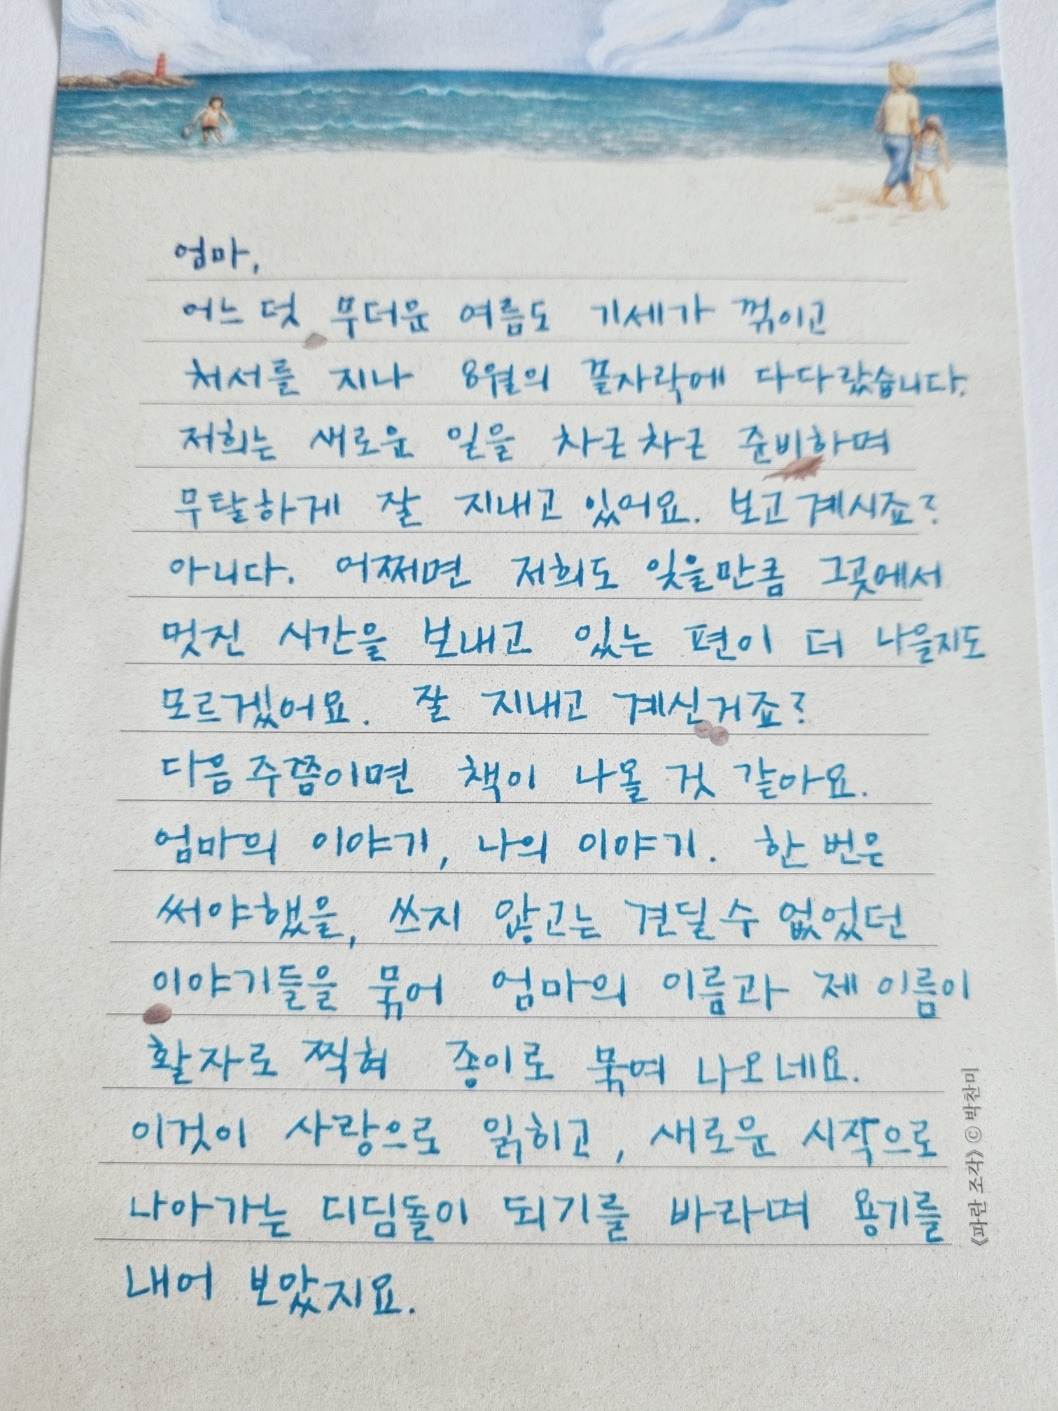 엄마,
어느 덧 무더운 여름도 기세가 꺾이고
처서를 지나 8월의 끝자락에 다다랐습니다.
저희는 새로운 일을 차근차근 준비하며
무탈하게 잘 지내고 있어요. 보고 계시죠?
아니다. 어쩌면 저희도 잊을만큼 그곳에서
멋진 시간을 보내고 있는 편이 더 나을지도
모르겠어요. 잘 지내고 계신거죠?
다음 주쯤이면 책이 나올 것 같아요.
엄마의 이야기, 나의 이야기. 한 번은
써야했을, 쓰지 않고는 견딜 수 없었던
이야기들을 묶어 엄마의 이름과 제 이름이
활자로 찍혀 종이로 묶여 나오네요.
이것이 사랑으로 읽히고, 새로운 시작으로
나아가는 디딤돌이 되기를 바라며 용기를
내어 보았지요.
《파란 조각》 © 박찬미